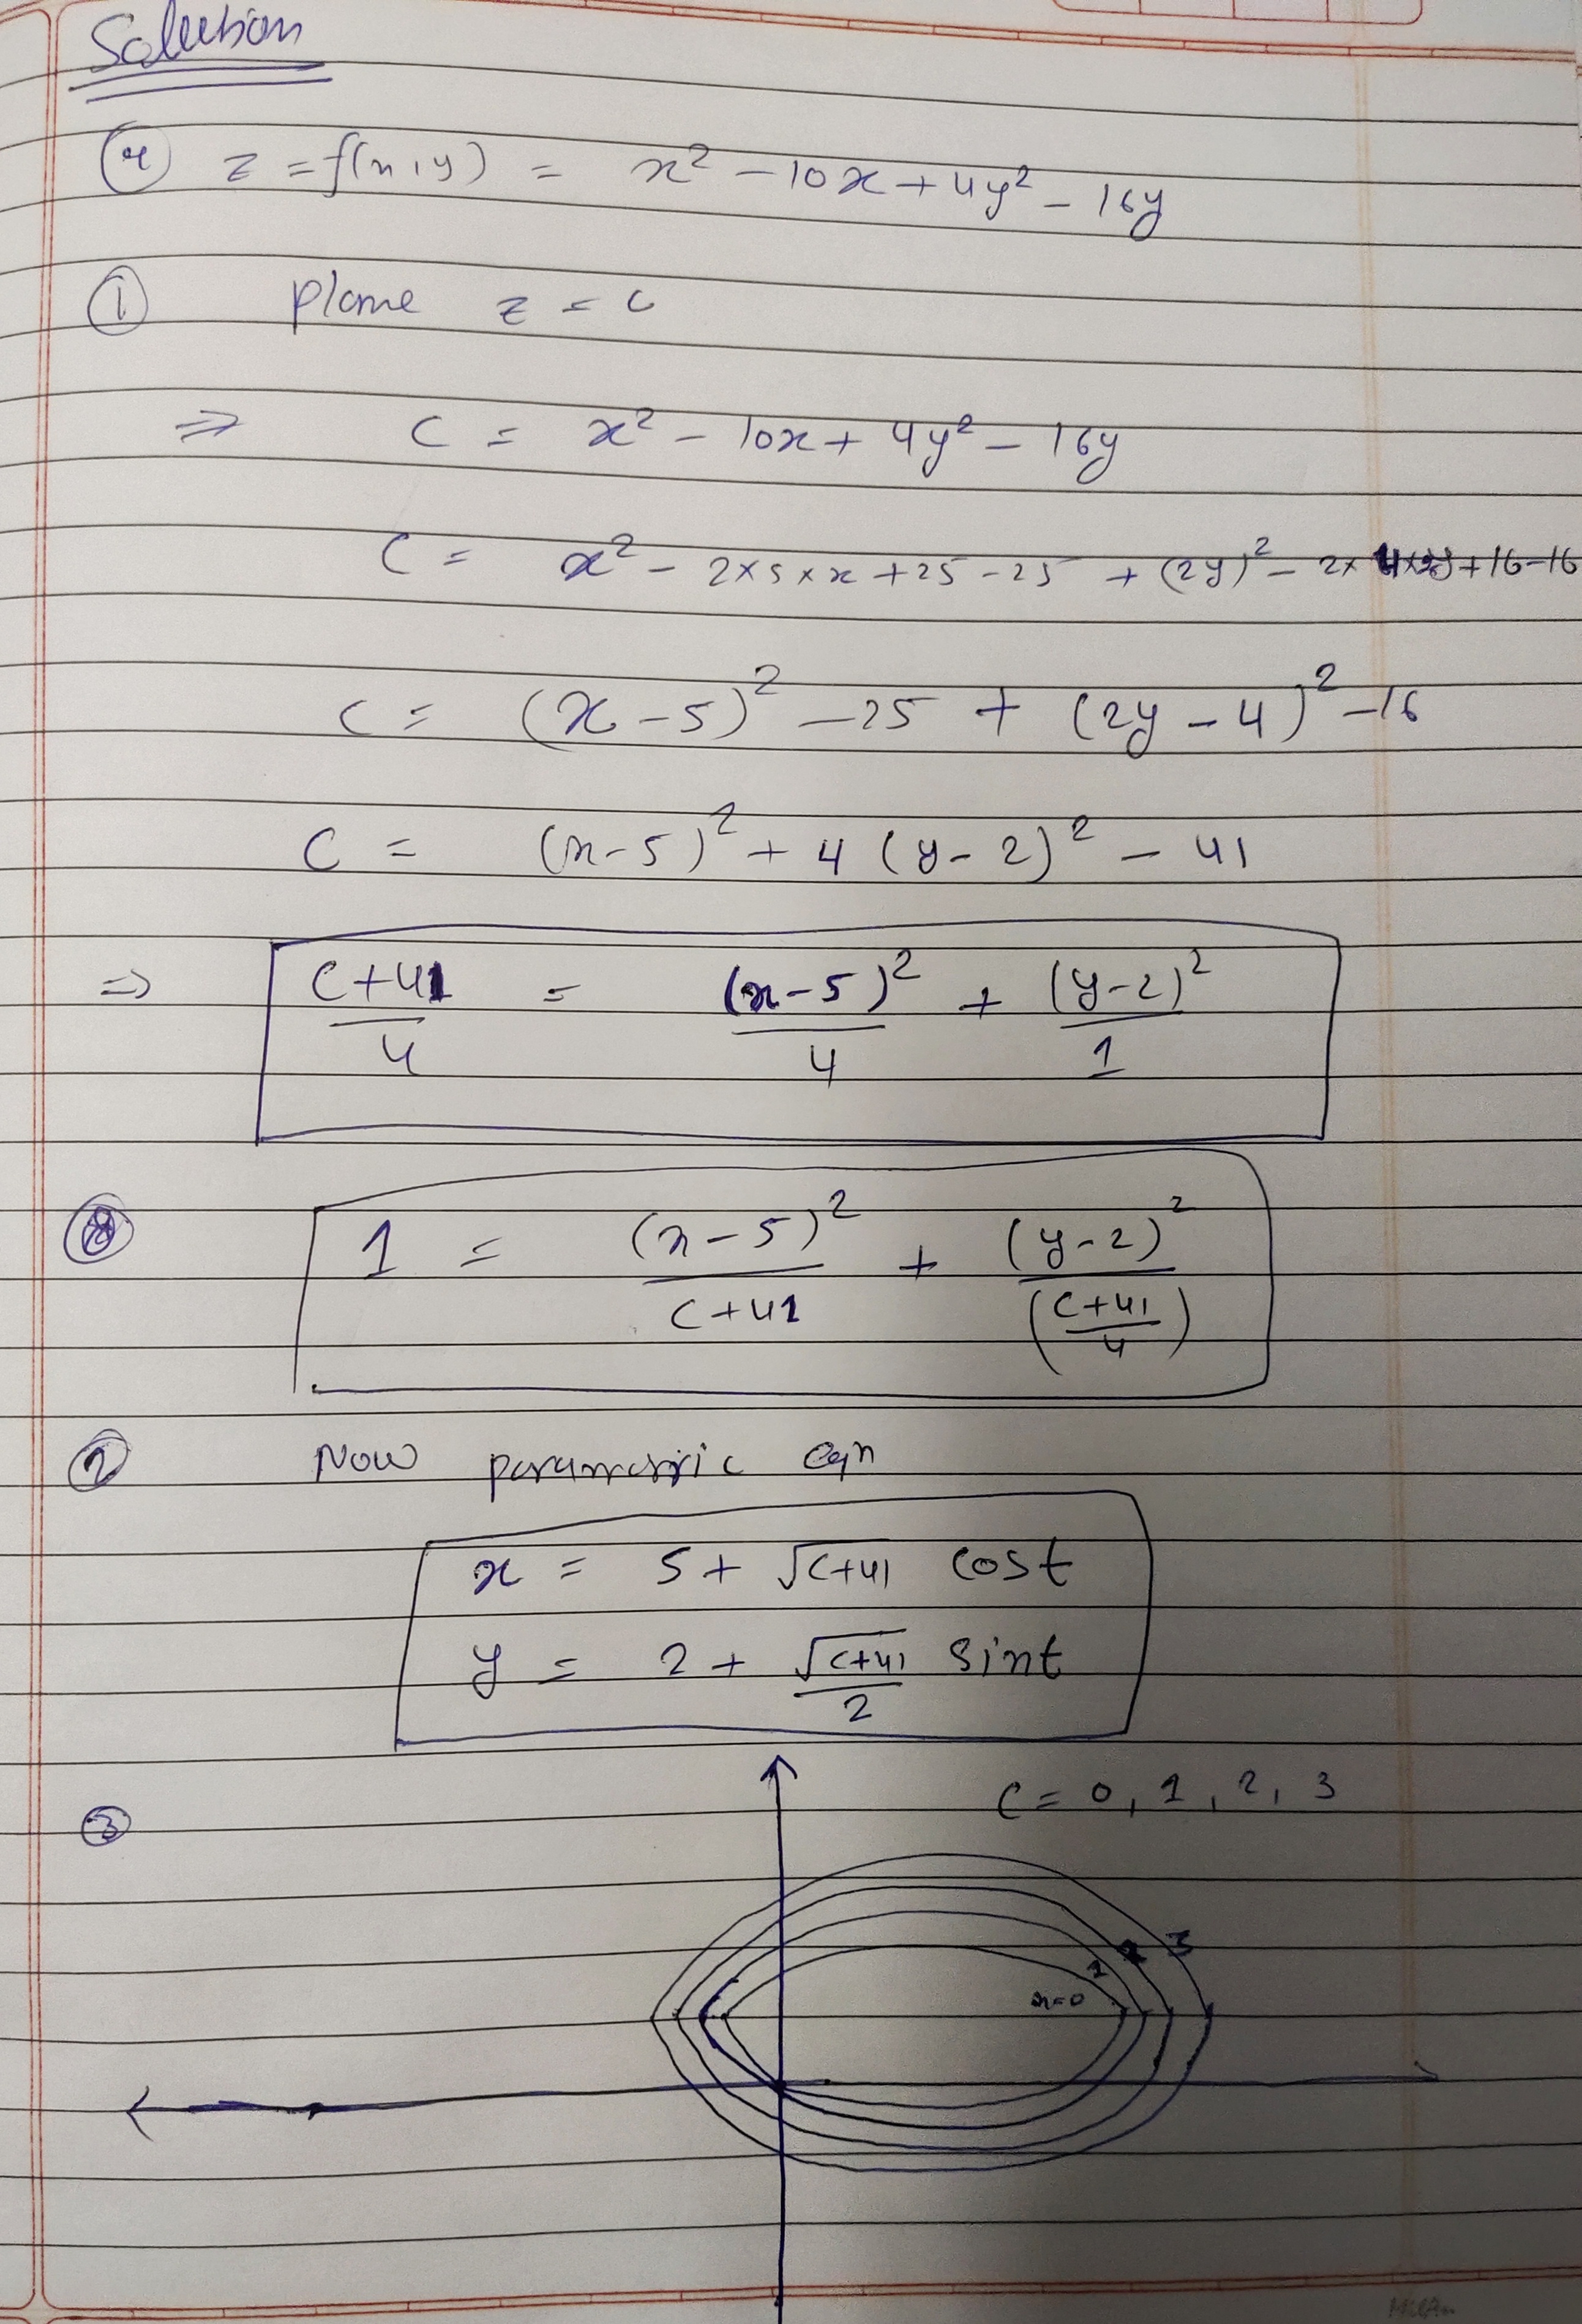 Solution
④ z = f(x,y) = x² - 10x + 4y² - 16y
① plane z = c
⇒ c = x² - 10x + 4y² - 16y
c = x² - 2×5×x + 25 - 25 + (2y)² - 2×4×2y + 16 - 16
c = (x - 5)² - 25 + (2y - 4)² - 16
c = (x-5)² + 4(y-2)² - 41
⇒ (c+41)/4 = (x-5)²/4 + (y-2)²/1
1 = (x-5)²/(c+41) + (y-2)²/((c+41)/4)
② Now parametric eqn
x = 5 + √(c+41) cost
y = 2 + √(c+41)/2 sint
③ c = 0, 1, 2, 3
1 2 3
=0